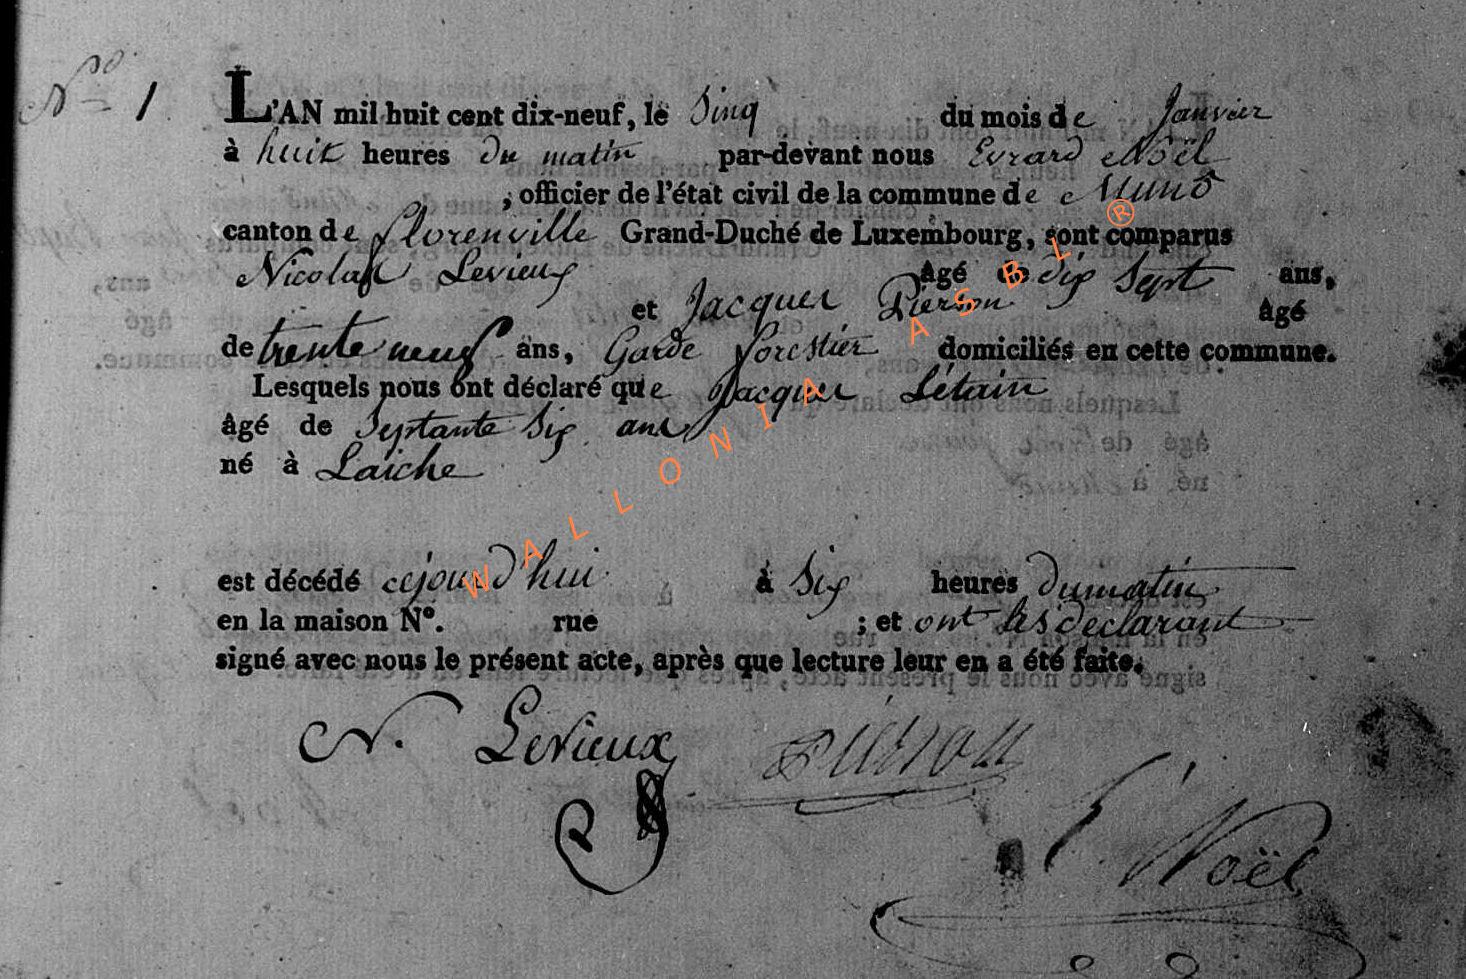 Nº 1
L'AN mil huit cent dix-neuf, le Sinq du mois de Janvier
à huit heures du matin par-devant nous Evrard Noël
, officier de l'état civil de la commune de Muno
canton de florenville Grand-Duché de Luxembourg, sont comparus
Nicolas Levieux âgé de dix Sept ans,
et Jacques Pierson âgé
de trente neuf ans, Garde forestier domiciliés en cette commune.
Lesquels nous ont déclaré que Jacques Létain
âgé de Septante Six ans
né à Laiche
est décédé cejourd'hui à Six heures du matin
en la maison Nº. rue ; et ont les déclarant
signé avec nous le présent acte, après que lecture leur en a été faite.
N. Levieux Pierson
E. Noël
WALLONIA ASBL ®